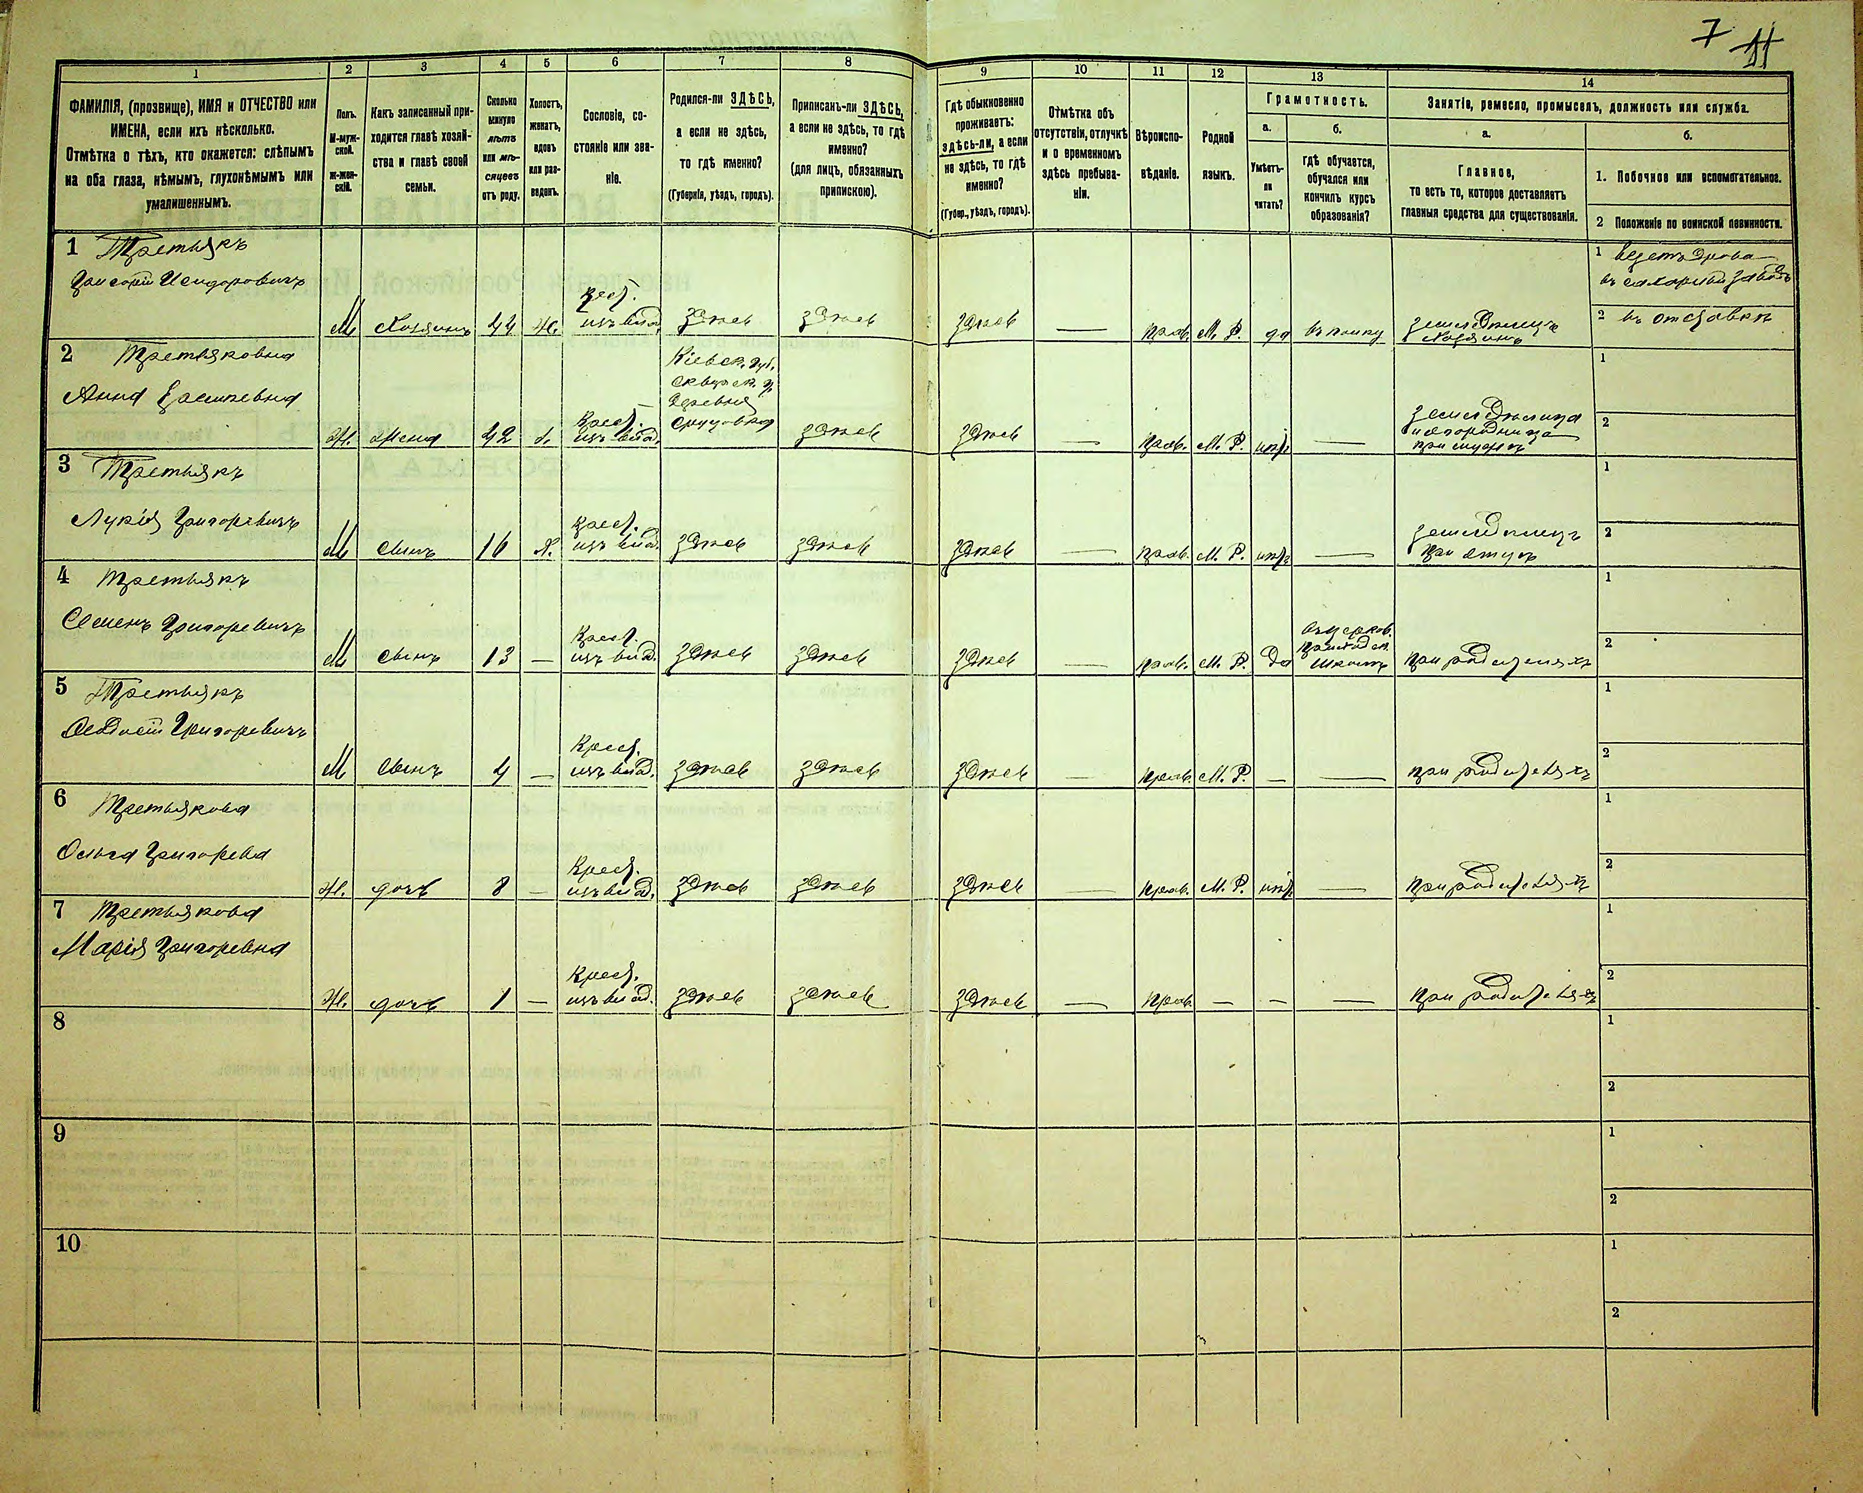 7 11
1
2
3
4
5
6
7
8
9
10
11
12
13
14
ФАМИЛІЯ, (прозвище), ИМЯ и ОТЧЕСТВО или
ИМЕНА, если ихъ нѣсколько.
Отмѣтка о тѣхъ, кто окажется: слѣпымъ
на оба глаза, нѣмымъ, глухонѣмымъ или
умалишеннымъ.
Полъ.
М-муж-
ской.
ж-жен-
скій.
Какъ записанный при-
ходится главѣ хозяй-
ства и главѣ своей
семьи.
Сколько
минуло
лѣтъ
или мѣ-
сяцевъ
отъ роду.
Холостъ,
женатъ,
вдовъ
или раз-
веденъ.
Сословіе, со-
стояніе или зва-
ніе.
Родился-ли ЗДѢСЬ,
а если не здѣсь,
то гдѣ именно?
(Губернія, уѣздъ, городъ).
Приписанъ-ли ЗДѢСЬ,
а если не здѣсь, то гдѣ
именно?
(для лицъ, обязанныхъ
припискою).
Гдѣ обыкновенно
проживаетъ:
здѣсь-ли, а если
не здѣсь, то гдѣ
именно?
(Губер., уѣздъ, городъ).
Отмѣтка объ
отсутствіи, отлучкѣ
и о временномъ
здѣсь пребыва-
ніи.
Вѣроиспо-
вѣданіе.
Родной
языкъ.
Грамотность.
а.
Умѣетъ-
ли
читать?
б.
гдѣ обучается,
обучался или
кончилъ курсъ
образованія?
Занятіе, ремесло, промыселъ, должность или служба.
а.
Главное,
то есть то, которое доставляетъ
главныя средства для существованія.
б.
1. Побочное или вспомогательное.
2 Положеніе по воинской повинности.
1 Третьякъ
Григорій Исидоровичъ
М Хозяинъ 44 Ж.
Крест.
изъ влад.
здѣсь здѣсь здѣсь — прав. М. Р. да въ полку
земледѣлецъ
Хозяинъ
1 везетъ дрова
въ сахарный заводъ
2 въ отставкѣ
2 Третьяковна
Анна
Ж. жена 42
Крест.
изъ влад.
Кіевск. губ.
Сквирск. у.
деревня
здѣсь здѣсь — прав. М. Р. нѣт —
земледѣлица
при мужѣ
1
2
3 Третьякъ
Григорьевичъ
М сынъ 16 Х.
Крест.
изъ влад.
здѣсь здѣсь здѣсь — прав. М. Р. нѣт —
земледѣлецъ
при отцѣ
1
2
4 Третьякъ
Семенъ Григоревичъ
М сынъ 13 —
Крест.
изъ влад.
здѣсь здѣсь здѣсь — прав. М. Р. Да
въ церков.
приходск.
школѣ
при родителяхъ
1
2
5 Третьякъ
Феодосій Григоревичъ
М Сынъ 4 —
Крест.
изъ влад.
здѣсь здѣсь здѣсь — прав. М. Р. — — при родителяхъ
1
2
6 Третьякова
Ольга Григорева
Ж. дочь 8 —
Крест.
изъ влад.
здѣсь здѣсь здѣсь — прав. М. Р. нѣт — при родителяхъ
1
2
7 Третьякова
Марія Григоревна
Ж. дочь 1 —
Крест.
изъ влад.
здѣсь здѣсь здѣсь — прав. — — — при родителяхъ
1
2
8
1
2
9
1
2
10
1
2